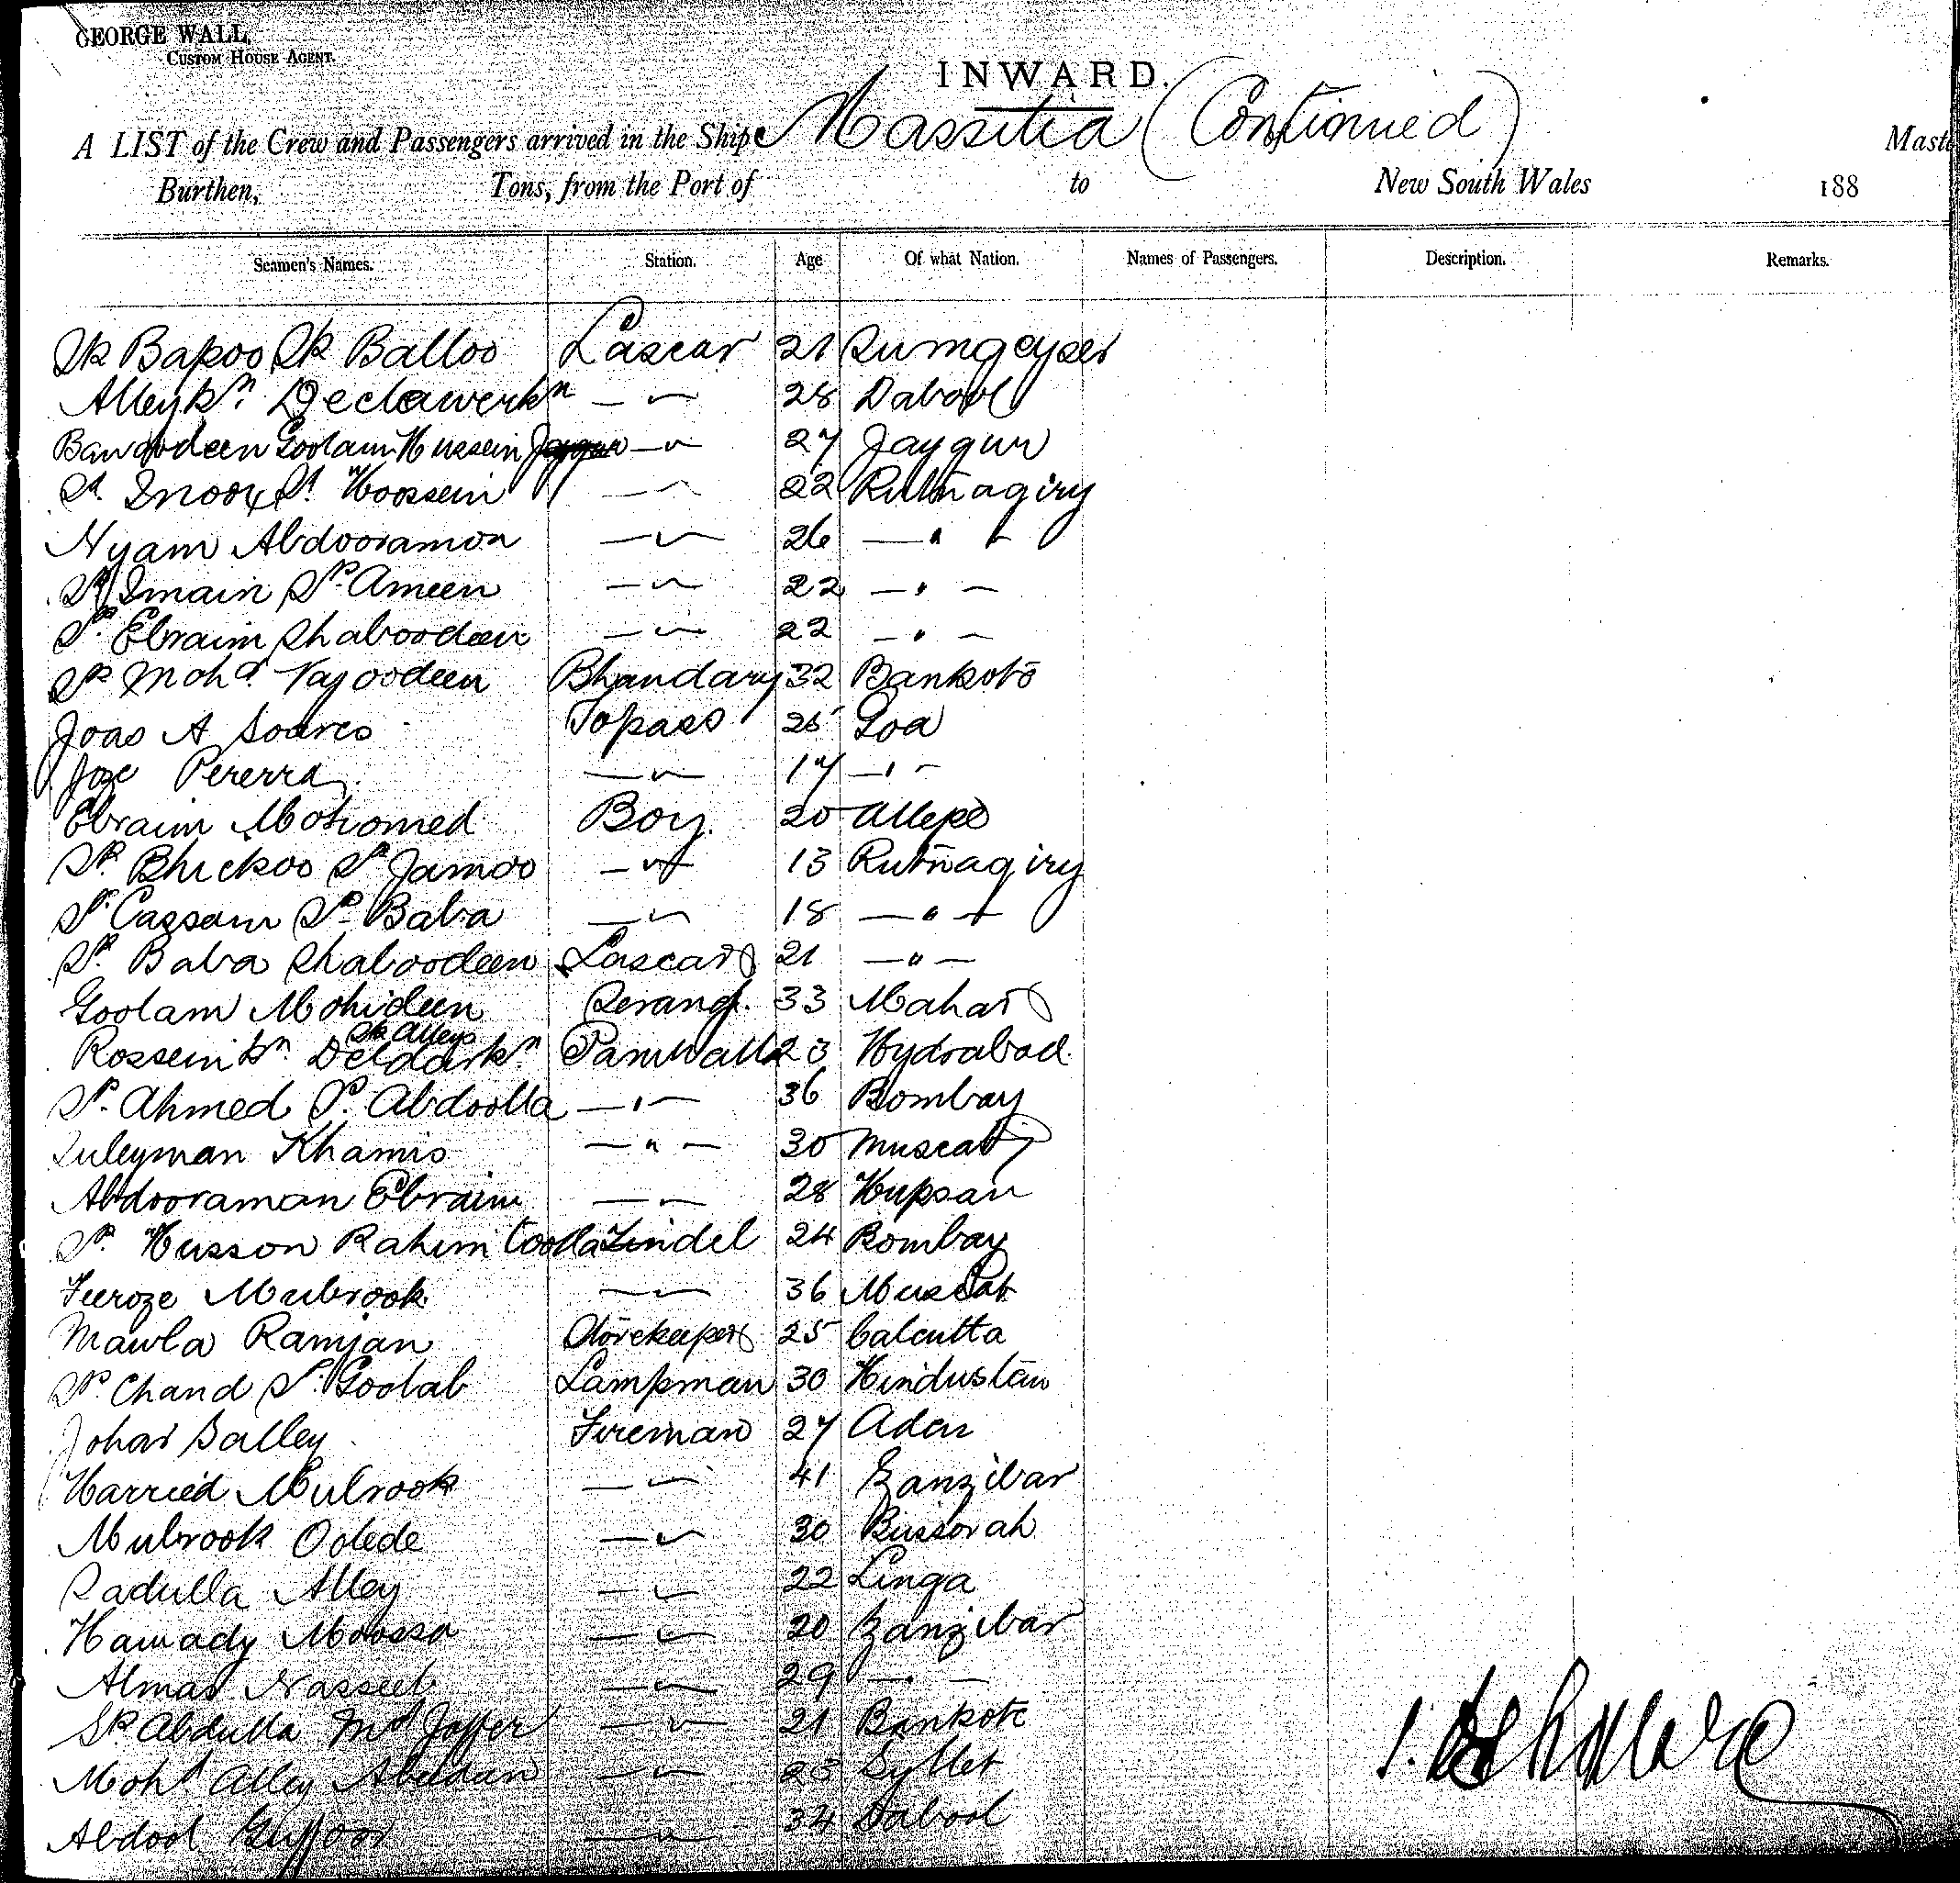 GEORGE WALL,
CUSTOM HOUSE AGENT.
INWARD.
A LIST of the Crew and Passengers arrived in the Ship Massilia (Continued) Maste
Burthen, Tons, from the Port of to New South Wales 188
Seamen's Names. Station. Age Of what Nation. Names of Passengers. Description. Remarks.
Sk Bapoo Sk Balloo Lascar 21 Sumgeyser
Alley kn. Declawerkn — " — 28 Dabool
Bawoodeen Goolam Hussein — " — 27 Jaygur
Sk. Hoossein — " — 22 Rutnagiry
Nyam Abdooramon — " — 26 — " —
Sk Imain Sk Ameen — " — 22 — " —
Sk. Ebraim Shaboodeen — " — 22 — " —
Sk Mohd. Tajoodeen Bhandary 32 Bankote
Joao A Soares Topass 25 Goa
Joze Pererra — " — 17 — " —
Ebraim Mohomed Boy. 20 Allepe
Sk. Bhickoo Sk Jamoo — " — 13 Rutnagiry
Sk. Cassam Sk. Baba — " — 18 — " —
Sk. Baba Shaboodeen Lascar 21 — " —
Goolam Mohideen Serang. 33 Mahar
Sk Alley
Rossein kn. Deldarkn Paniwalla 23 Hydrabad.
Sk. Ahmed Sk. Abdoolla — " — 36 Bombay
Suleyman Khamis — " — 30 Muscat
Abdooraman Ebraim — " — 28 Hupsan
Sk. Husson Rahim Coolla Tindel 24 Bombay
Feeroze Mubrook — " — 36 Muscat
Mawla Ramjan Storekeeper 25 Calcutta
Sk. Chand Sk. Goolab Lampman 30 Hindustan
Johar Salley Fireman 27 Aden
Harried Mubrook — " — 41 Zanzibar
Mubrook Oolede — " — 30 Bussorah
Sadulla Alley — " — 22 Linga
Hamady Moossa — " — 20 Zanzibar
Almas Nasseeb — " — 29 — " —
Sk. Abdulla Md Jaffer — " — 21 Bankote
Mohd Alley Abudan — " — 23 Syllet
Abdool Guffoor — " — 34 Dabool